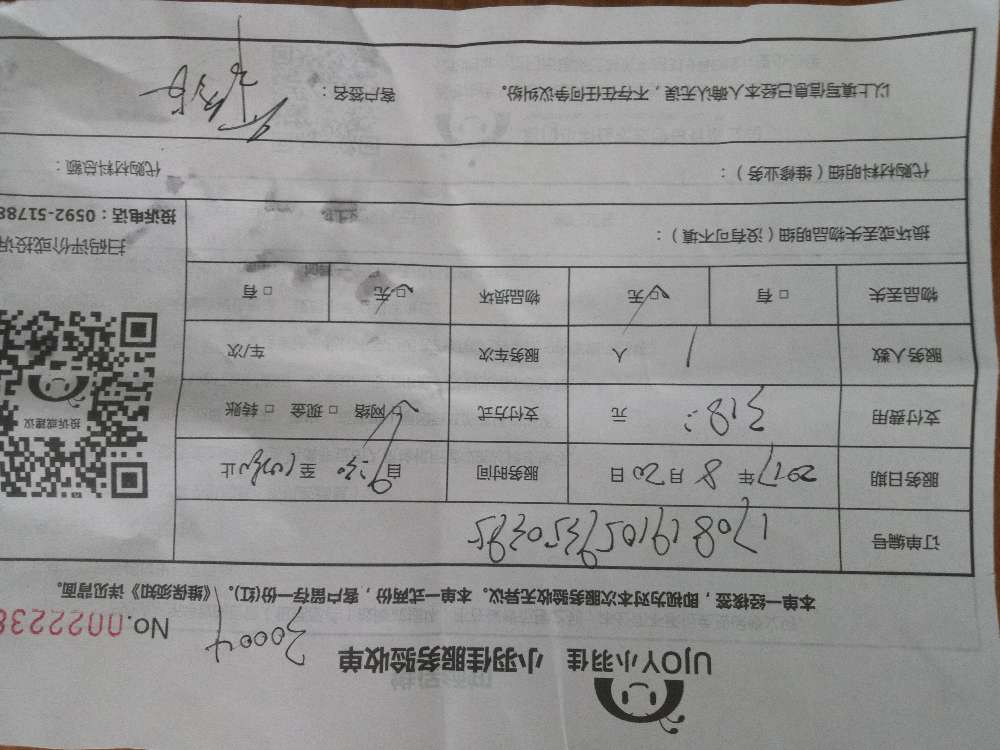 UJOY小羽佳 小羽佳服务验收单
30004
No.0022238
本单一经接签，即视为对本次服务验收无异议。本单一式两份，客户留存一份(红)。《维保须知》详见背面。
订单编号
服务日期 2017年 8 月 20 日 服务时间 自 9:30 至 止
支付费用 318 元 支付方式 □ 网络 □ 现金 □ 转账
投诉或建议
服务人数 1 人 服务车次 车/次
物品丢失 □ 有 □ 无 物品损坏 □ 无 □ 有
扫码评价或投诉
投诉电话：0592-51788
损坏或丢失物品明细（没有可不填）：
代购材料明细（维修业务）： 代购材料总额：
以上填写信息已经本人确认无误，不存在任何争议纠纷。 客户签名：